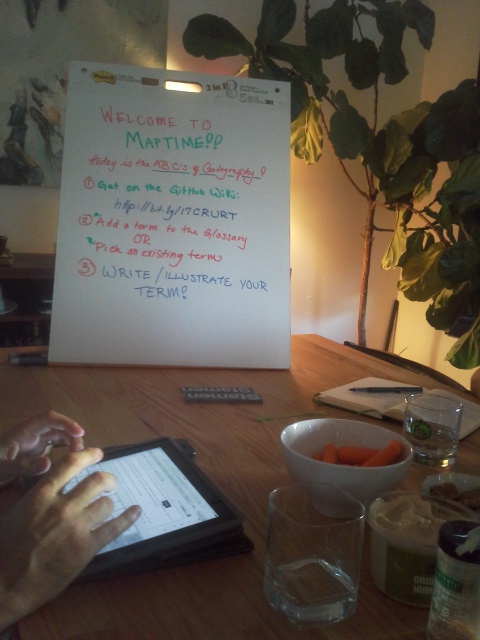 Post-it
2 in 1
3M
WELCOME TO
MAPTIME!!
today is the ABC's of Cartography!
① Get on the GitHub Wiki:
http://bit.ly/17CRURT
② * Add a term to the Glossary
OR
* Pick an existing term
③ WRITE / ILLUSTRATE YOUR
TERM!
Stamen
Stamen